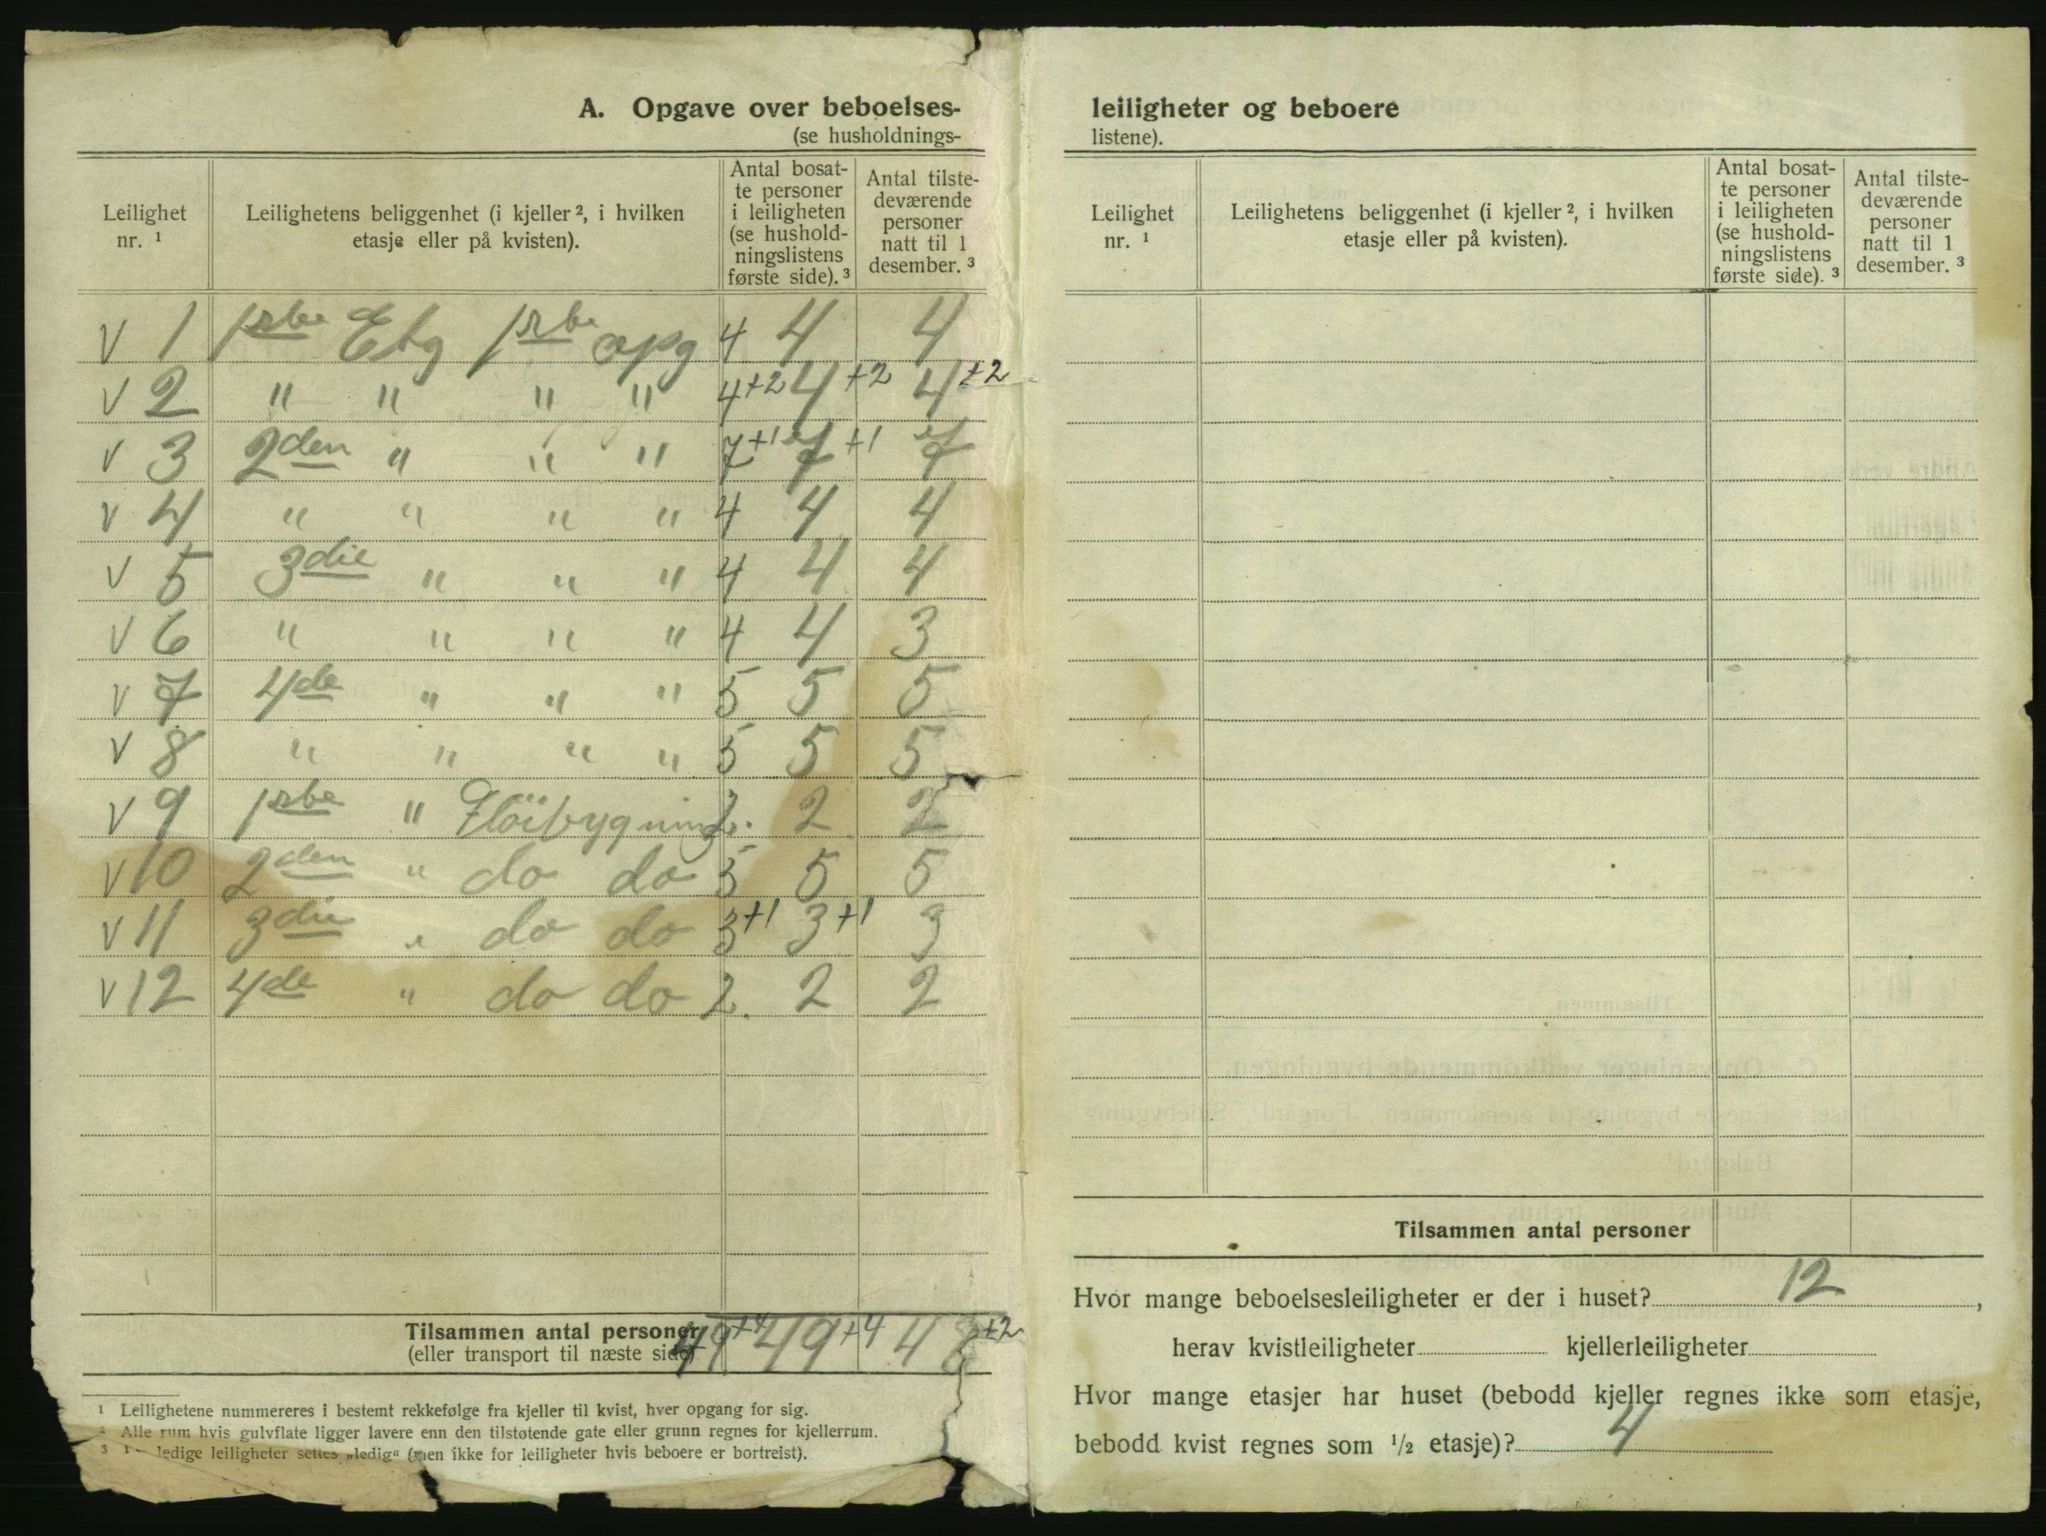 A. Opgave over beboelses-
(se husholdnings-
Leilighet nr. ¹
Leilighetens beliggenhet (i kjeller ², i hvilken etasje eller på kvisten).
Antal bosat-
te personer
i leiligheten
(se hushold-
ningslistens
første side). ³
Antal tilste-
deværende
personer
natt til 1
desember. ³
V 1 1ste Etg 1ste opg 4 4 4
V 2 " " " " 4+2 4+2 4+2
V 3 2den " " " 7+1 7+1 7
V 4 " " " " 4 4 4
V 5 3die " " " 4 4 4
V 6 " " " " 4 4 3
V 7 4de " " " 5 5 5
V 8 " " " " 5 5 5
V 9 1ste " Flöibygning 2. 2 2
V 10 2den " do do 5 5 5
V 11 3die " do do 3+1 3+1 3
V 12 4de " do do 2. 2 2
Tilsammen antal personer 49+4 49+4 48+2
(eller transport til næste side)
¹ Leilighetene nummereres i bestemt rekkefølge fra kjeller til kvist, hver opgang for sig.
² Alle rum hvis gulvflate ligger lavere enn den tilstøtende gate eller grunn regnes for kjellerrum.
³ I ledige leiligheter settes „ledig" (men ikke for leiligheter hvis beboere er bortreist).
leiligheter og beboere
listene).
Leilighet nr. ¹
Leilighetens beliggenhet (i kjeller ², i hvilken etasje eller på kvisten).
Antal bosat-
te personer
i leiligheten
(se hushold-
ningslistens
første side). ³
Antal tilste-
deværende
personer
natt til 1
desember. ³
Tilsammen antal personer
Hvor mange beboelsesleiligheter er der i huset? 12,
herav kvistleiligheter kjellerleiligheter
Hvor mange etasjer har huset (bebodd kjeller regnes ikke som etasje,
bebodd kvist regnes som ½ etasje)? 4